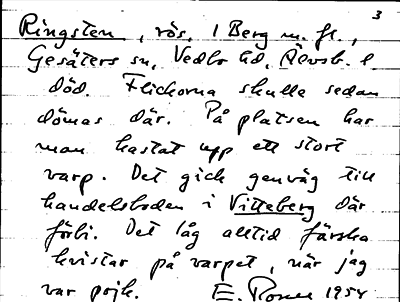 3
Ringsten, rös, i Berg m. fl.,
Gesäters sn, Vedbo hd, Älvsb. l.
död. Flickorna skulle sedan
dömas där. På platsen har
man kastat upp ett stort
varp. Det gick genväg till
handelsboden i Vitteberg där
förbi. Det låg alltid färska
kvistar på varpet, när jag
var pojk. E. 1954